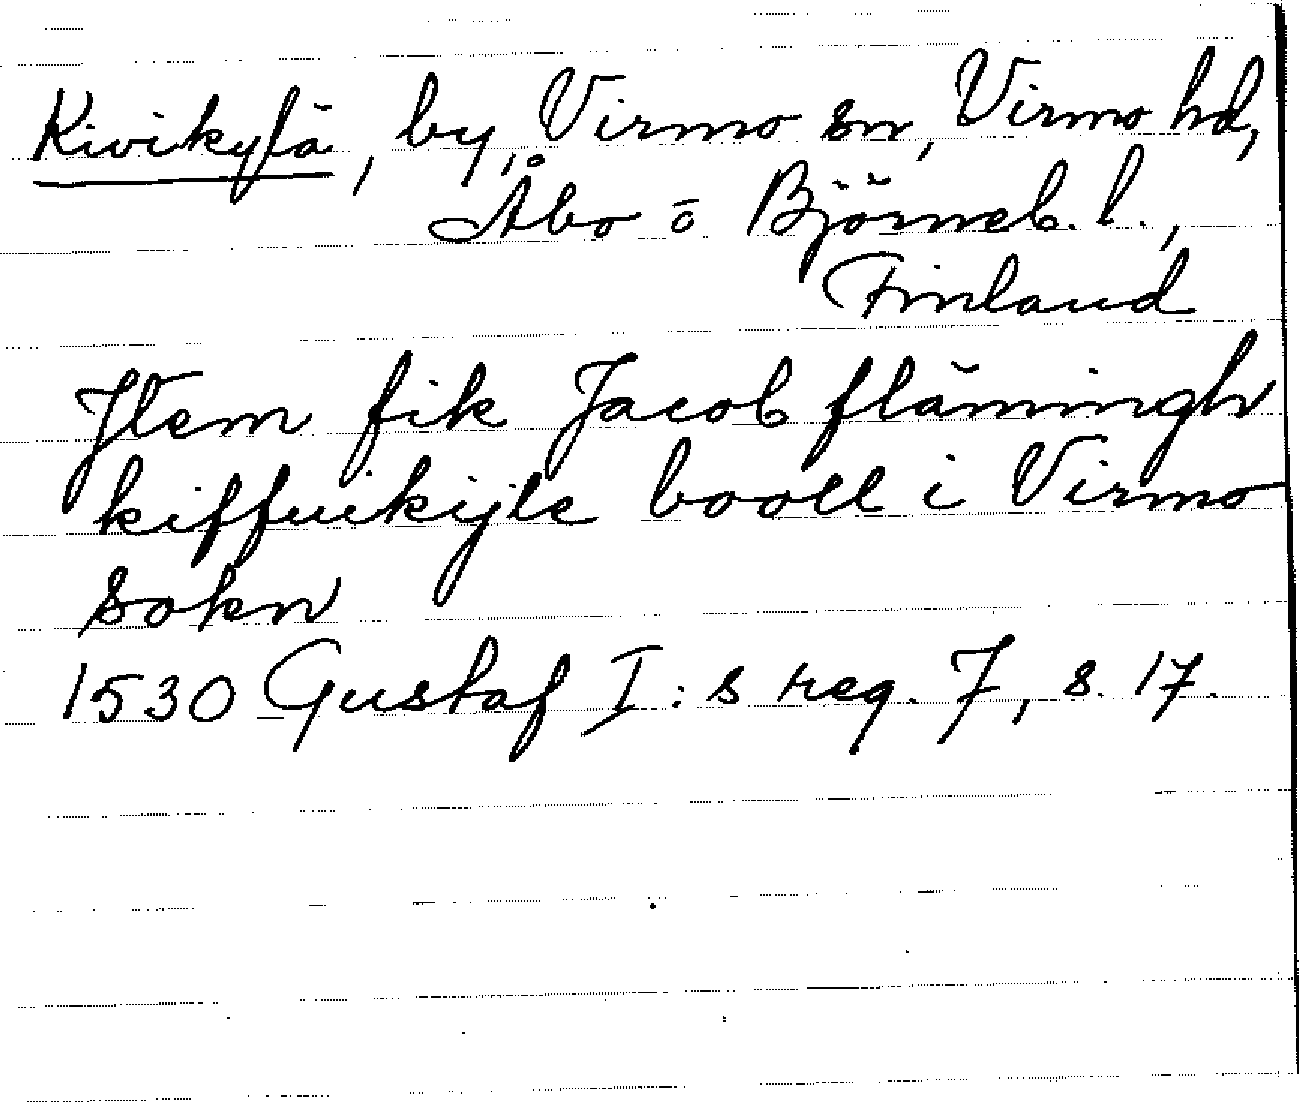 Kivikylä, by, Virmo sn, Virmo hd,
Åbo o Björneb. l.,
Finland
Jtem fik Jacob flämingh
kiffuikijle booll i Virmo
sokn
1530 Gustaf I:s reg. 7, s. 17.